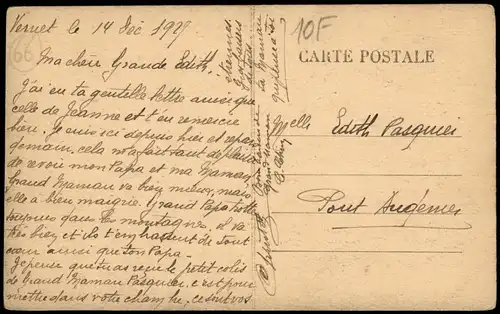 Vernet le 14 Déc 1927
Ma chère Grande Edith.
J'ai eu ta gentille lettre ainsi que
celle de Jeanne et t'en remercie
bien. Je suis ici depuis hier et repars
demain, cela m'a fait tant de plaisir
de revoir mon Papa et ma Maman
Grand Maman va bien mieux, mais
elle a bien maigrie. Grand Papa trotte
toujours dans les montagnes, il va
très bien et ils t'embrassent de tout
cœur ainsi que ton Papa.
Je pense que tu as reçu le petit colis
de Grand Maman Pasquier, c'est pour
mettre dans votre chambre, ce sont vos
étrennes
ta Maman
Grand
10F
66
CARTE POSTALE
Melle Edith Pasquier
Pont Audemer